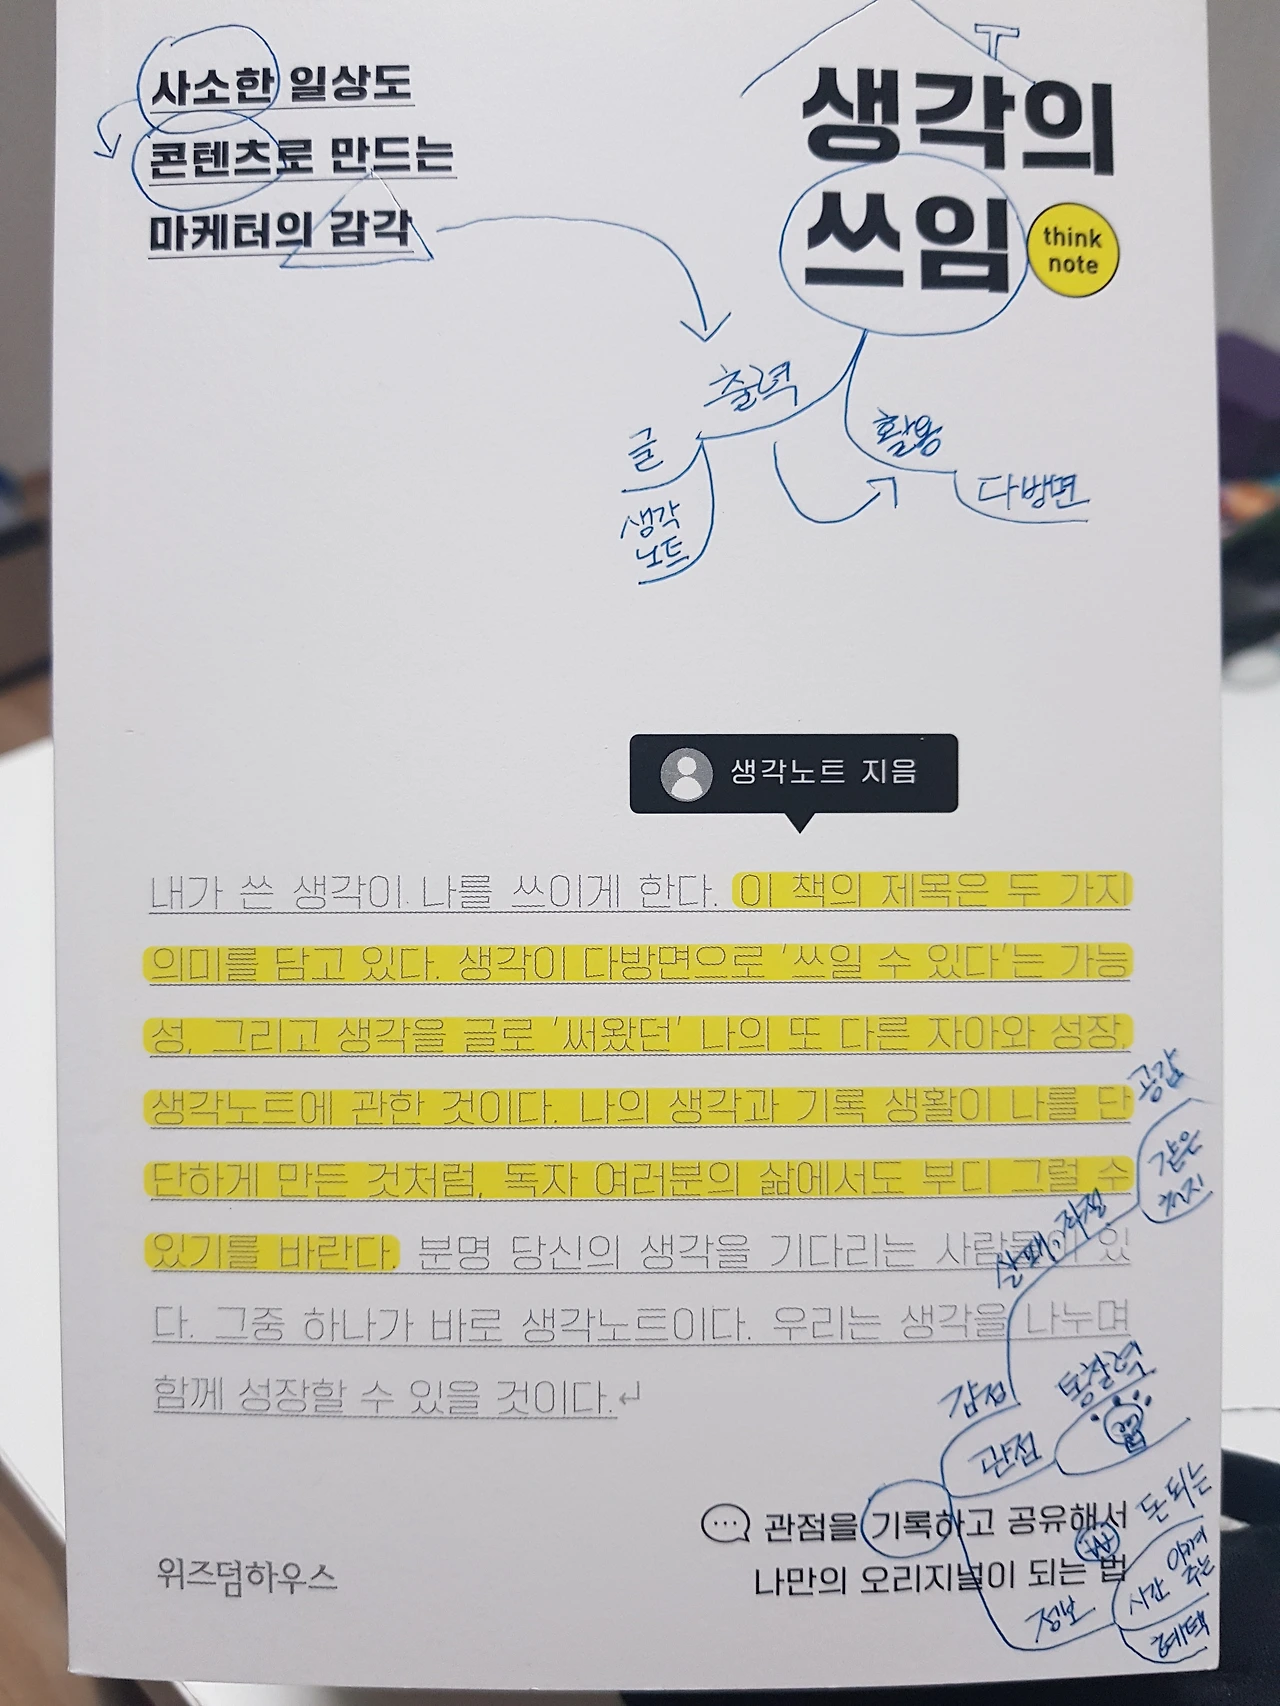 사소한 일상도
콘텐츠로 만드는
마케터의 감각
생각의
쓰임
think
note
출력
글
생각
노트
활용
다방면
생각노트 지음
내가 쓴 생각이 나를 쓰이게 한다. 이 책의 제목은 두 가지
의미를 담고 있다. 생각이 다방면으로 '쓰일 수 있다'는 가능
성, 그리고 생각을 글로 '써왔던' 나의 또 다른 자아와 성장,
생각노트에 관한 것이다. 나의 생각과 기록 생활이 나를 단
단하게 만든 것처럼, 독자 여러분의 삶에서도 부디 그럴 수
있기를 바란다. 분명 당신의 생각을 기다리는 사람들이 있
다. 그중 하나가 바로 생각노트이다. 우리는 생각을 나누며
함께 성장할 수 있을 것이다.↵
공감
같은
처지
실패, 좌절
감정
통찰력
관점
관점을 기록하고 공유해서
나만의 오리지널이 되는 법
돈 되는
정보
시간
아껴
주는
혜택
위즈덤하우스